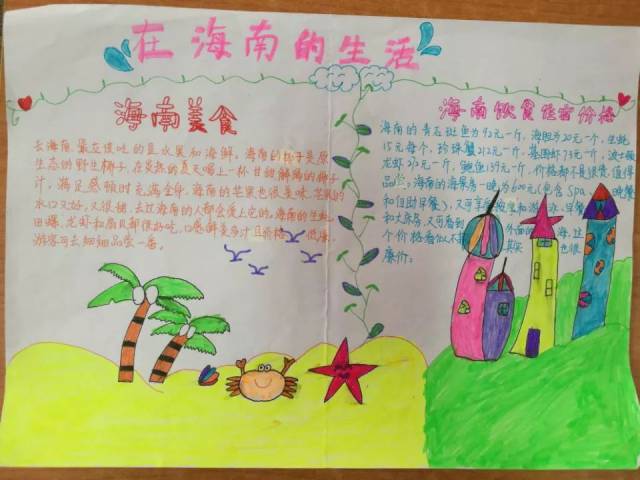 在海南的生活
海南美食
去海南,最应该吃的是水果和海鲜,海南的椰子是原
生态的野生椰子,在炎热的夏天喝上一杯甘甜解渴的椰子
汁,满足感顿时充满全身,海南的芒果也很美味,芒果的
水口又好,又很甜,去过海南的人都会爱上它的,海南的生蚝
田螺、龙虾和扇贝都很好吃,口感鲜美多汁且价格 低廉,
游客可去细细品尝一番。
海南饮食住宿价格
海南的青石斑鱼为93元一斤,海胆为20元一个,生蚝
15元每个,珍珠蟹212元一斤,基围虾73元一斤,波士顿
龙虾212元一斤,鲍鱼139元一斤,价格都不是很贵,值得
品尝,海南的海景房一晚为600元(包含Spa 晚餐
和自助早餐),又可享受 和游泳,早餐
和大床房,又可看到 外面的 海,这
个价格看似不 其实 也很
廉价。